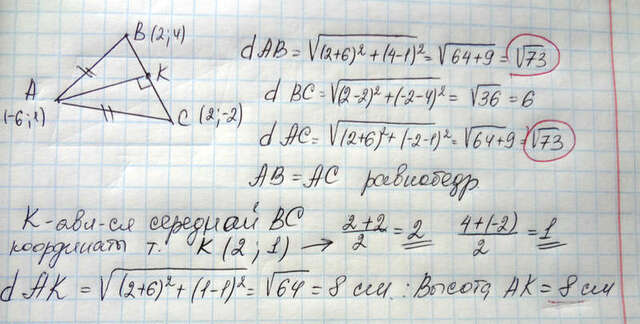 B (2; 4)
K
A
(-6; 1)
C (2; -2)
d AB = √(2+6)² + (4-1)² = √64+9 = √73
d BC = √(2-2)² + (-2-4)² = √36 = 6
d AC = √(2+6)² + (-2-1)² = √64+9 = √73
AB = AC равнобедр.
K - явл-ся серединой BC
координаты т. K (2; 1) → 2+2/2 = 2 4+(-2)/2 = 1
d AK = √(2+6)² + (1-1)² = √64 = 8 см. : Высота AK = 8 см